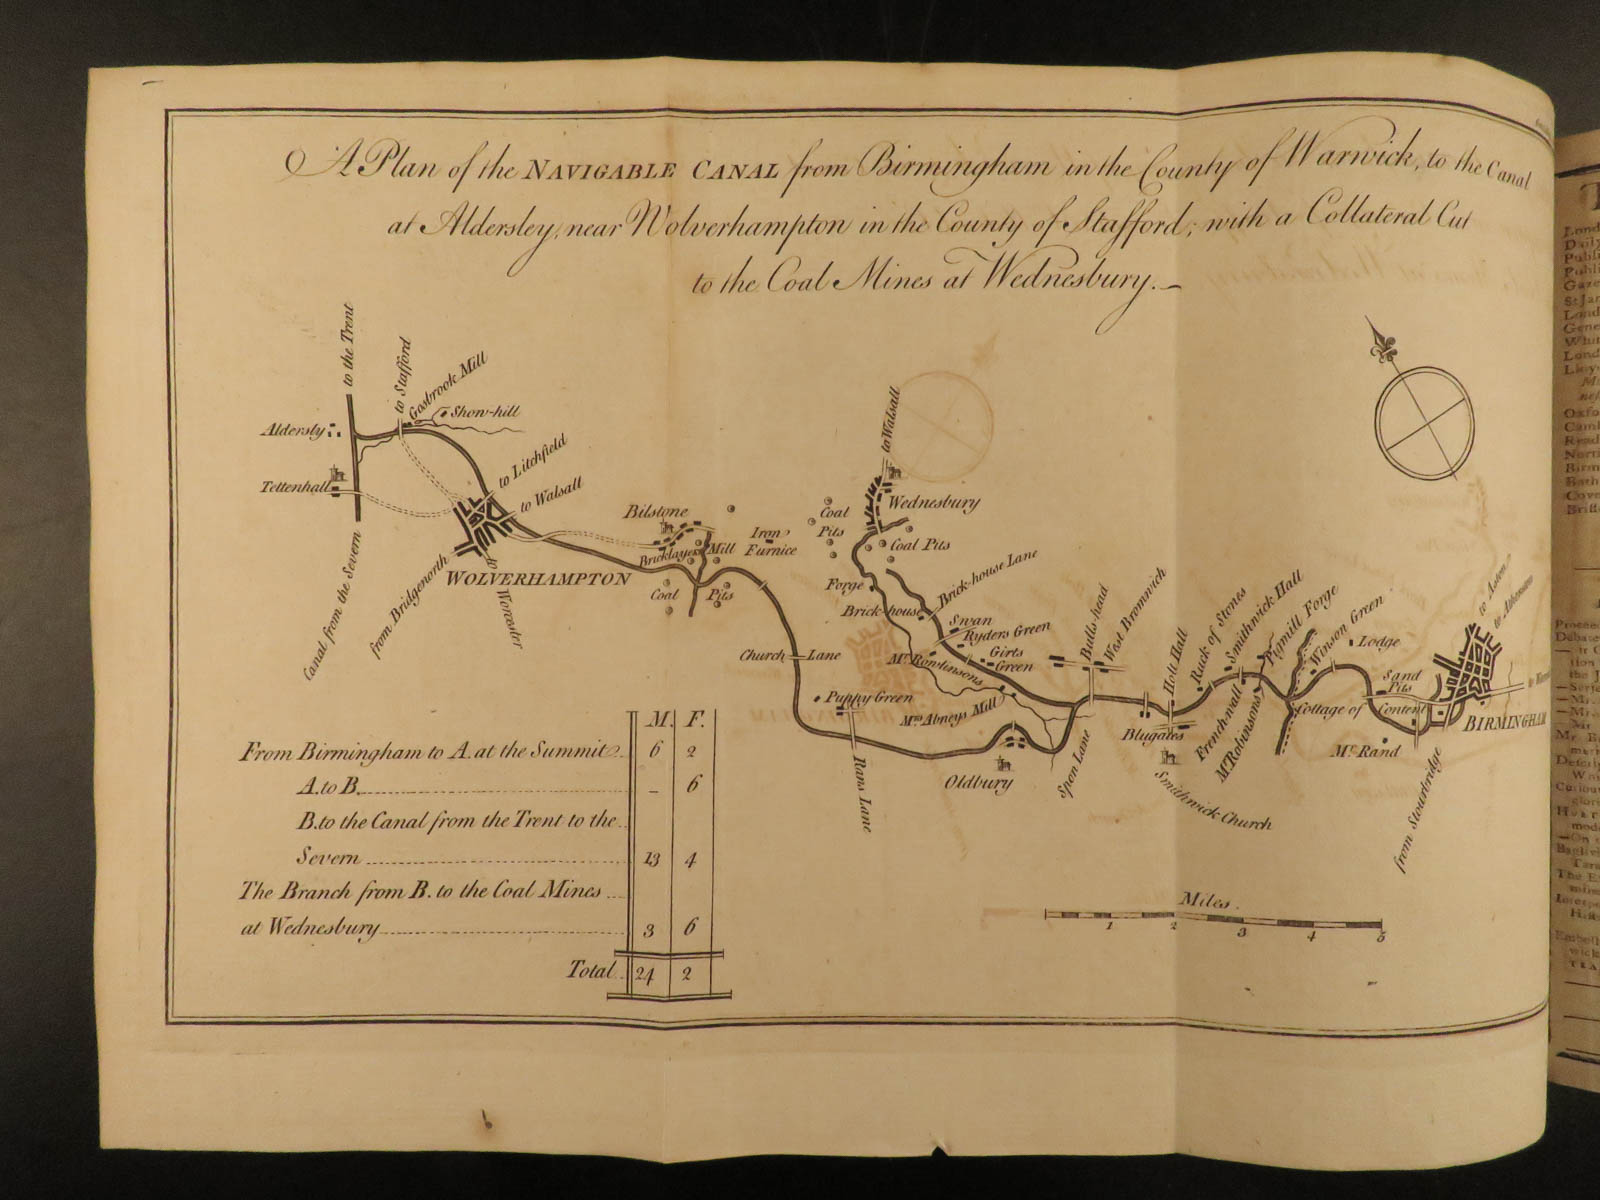 A Plan of the NAVIGABLE CANAL from Birmingham in the County of Warwick, to the Canal
at Aldersley, near Wolverhampton in the County of Stafford; with a Collateral Cut
to the Coal Mines at Wednesbury.
to the Trent
to Stafford
Gosbrook Mill
Show-hill
Aldersly
Tettenhall
to Litchfield
to Walsall
Canal from the Severn
from Bridgenorth
WOLVERHAMPTON
to Worcester
Bilstone
Bricklayers
Mill
Iron
Furnice
Coal Pits
to Walsall
Wednesbury
Coal
Pits
Coal Pits
Forge
Brick-house
Brick-house Lane
Swan
Ryders Green
Girts
Green
Mr. Rowlinsons
Mrs Abneys Mill
Church Lane
Puppy Green
Rans Lane
Oldbury
Spon Lane
Bulls-head
West Bromwich
Holt Hall
Blugates
Smithwick Church
Ruck of Stones
Smithwick Hall
French-wall
Mr. Robinsons
Pigmill Forge
Winson Green
Lodge
Sand
Pits
Cottage of Content
Mr. Rand
from Stourbridge
BIRMINGHAM
to Aston
M. F.
From Birmingham to A. at the Summit 6 2
A. to B. – 6
B. to the Canal from the Trent to the
Severn 13 4
The Branch from B. to the Coal Mines
at Wednesbury 3 6
Total 24 2
Miles.
1 2 3 4 5